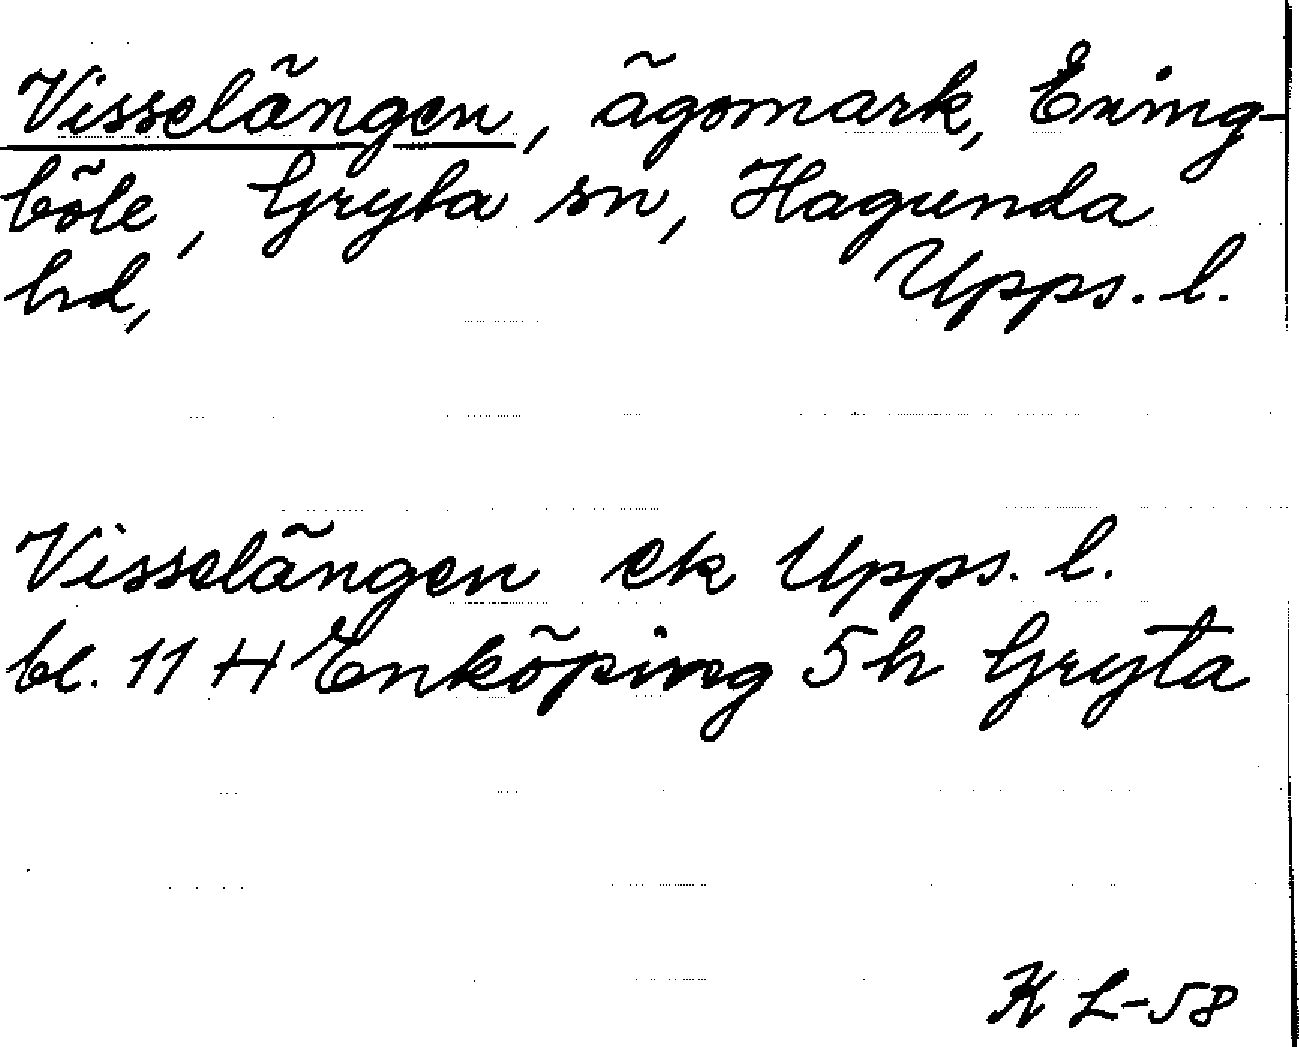 Visselängen, ägomark, Exing-
böle, Gryta sn, Hagunda
hd, Upps. l.
Visselängen ek Upps. l.
bl. 11 H Enköping 5h Gryta
K L-58